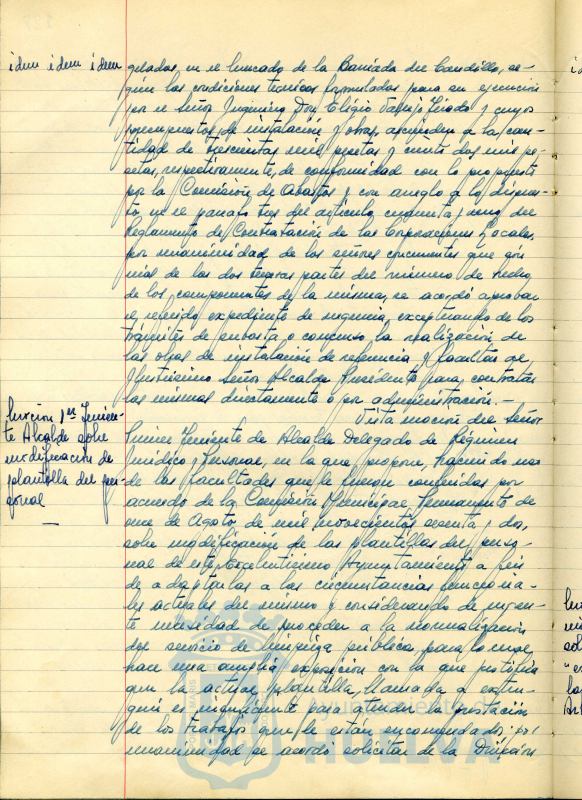 idem idem idem
gelados, en el mercado de la Barriada del Candilla, se-
gún las condiciones técnicas formuladas para su ejecución
por el Señor Ingeniero Don Eligio y cuyos
presupuestos, de instalación y obras, ascienden a la can-
tidad de trescientas mil pesetas y ciento dos mil pe-
setas, respectivamente, de conformidad con lo propuesto
por la Comisión de Abastos y con arreglo a lo dispues-
to, en el párrafo tres del artículo cuarenta y uno del
Reglamento de Contratación de las Corporaciones Locales,
por unanimidad de los señores concurrentes que
de las dos terceras partes del número de hecho
de los componentes de la misma, se acordó aprobar
el referido expediente de urgencia, exceptuando de los
trámites de subasta o concurso la realización de
las obras de instalación de referencia y facultar al
Ilustrísimo Señor Alcalde Presidente para contratar
las mismas directamente o por administración.-
Moción 1er Tenien-
te Alcalde sobre
modificación de
plantilla del per-
sonal
Vista moción del Señor
Primer Teniente de Alcalde Delegado de Régimen
Jurídico y Personal, en la que propone, haciendo uso
de las facultades que le fueron conferidas por
acuerdo de la Comisión Municipal Permanente de
once de Agosto de mil novecientos sesenta y dos,
sobre modificación de las plantillas del perso-
nal de este Excelentísimo Ayuntamiento a fin
de adaptarlas a las circunstancias funciona-
les actuales del mismo y considerando de urgen-
te necesidad de proceder a la normalización
del servicio de limpieza pública, para lo cual
hace una amplia exposición con la que justifica
que la actual plantilla, llamada a extin-
guir es insuficiente para atender la prestación
de los trabajos que le están encomendados; por
unanimidad se acordó solicitar de la Dirección
Ayuntamiento de
HUELVA